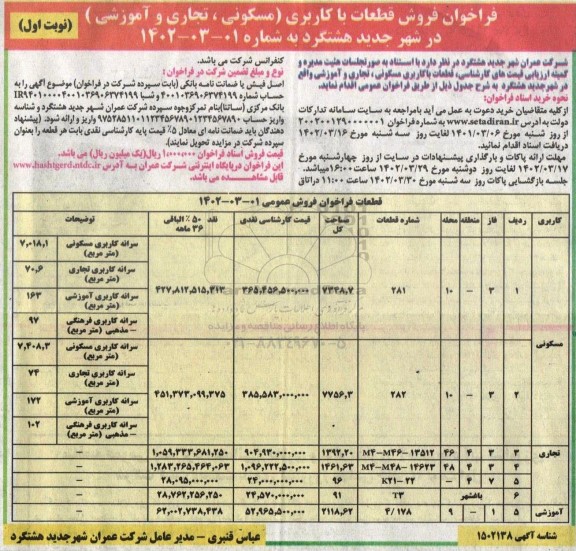 فراخوان فروش قطعات با کاربری (مسکونی ، تجاری و آموزشی )
در شهر جدید هشتگرد به شماره ۰۱-۰۳-۱۴۰۲
(نوبت اول)
شرکت عمران شهر جدید هشتگرد در نظر دارد با استناد به صورتجلسات هیئت مدیره و
کمیته ارزیابی قیمت های کارشناسی، قطعات با کاربری مسکونی ، تجاری و آموزشی واقع
در شهر جدید هشتگرد به شرح جدول ذیل از طریق فراخوان عمومی اقدام نماید.
نحوه خرید اسناد فراخوان:
از کلیه متقاضیان خرید دعوت به عمل می آید با مراجعه به سایت سامانه تدارکات
دولت به آدرس www.setadiran.ir به شماره فراخوان
از روز شنبه مورخ ۱۴۰۱/۰۳/۰۶ لغایت روز سه شنبه مورخ ۱۴۰۲/۰۳/۱۶
دریافت اسناد اقدام نمائید.
مهلت ارائه پاکات و بارگذاری پیشنهادات در سایت از روز چهارشنبه مورخ
۱۴۰۲/۰۳/۱۷ لغایت روز دوشنبه مورخ ۱۴۰۲/۰۳/۲۹ ساعت ۱۶:۰۰ میباشد.
جلسه بازگشایی پاکات روز سه شنبه مورخ ۱۴۰۲/۰۳/۳۰ ساعت ۱۱:۰۰ در اتاق
کنفرانس شرکت می باشد.
نوع و مبلغ تضمین شرکت در فراخوان :
اصل فیش یا ضمانت نامه بانکی (بابت سپرده شرکت در فراخوان) موضوع آگهی را به
حساب شماره ۴۰۰۱۰۳۶۹۰۶۳۷۴۱۹۹ و شبا
بانک مرکزی (ساتنا) بنام تمرکز وجوه سپرده شرکت عمران شهر جدید هشتگرد و شناسه
واریز و ارائه شود. (پیشنهاد
دهندگان باید ضمانت نامه ای معادل ۵٪ قیمت پایه کارشناسی نقدی بابت هر قطعه را بعنوان
سپرده شرکت در مزایده تحویل نمایند).
قیمت فروش اسناد فراخوان ۱,۰۰۰,۰۰۰ ریال (یک میلیون ریال) می باشد.
این فراخوان در پایگاه اینترنتی شرکت عمران به آدرس www.hashtgerd.ntdc.ir
قابل مشاهده می باشد.
قطعات فراخوان فروش عمومی ۰۱-۰۳-۱۴۰۲
کاربری ردیف فاز منطقه محله شماره قطعات مساحت کل قیمت کارشناسی نقدی نقد ۵۰ ٪ الباقی ۳۶ ماهه توضیحات
مسکونی ۱ ۳ – ۱۰ ۲۸۱ ۷۳۴۸,۷ ۳۶۵,۴۵۶,۵۰۰,۰۰۰ ۴۲۷,۸۱۲,۵۱۵,۴۱۳
سرانه کاربری مسکونی (متر مربع) ۷,۰۱۸,۱
سرانه کاربری تجاری (متر مربع) ۷۰,۶
سرانه کاربری آموزشی (متر مربع) ۱۶۳
سرانه کاربری فرهنگی – مذهبی (متر مربع) ۹۷
۲ ۳ – ۱۰ ۲۸۲ ۷۷۵۶,۳ ۳۸۵,۵۸۳,۰۰۰,۰۰۰ ۴۵۱,۳۷۳,۰۹۹,۳۷۵
سرانه کاربری مسکونی (متر مربع) ۷,۴۰۸,۳
سرانه کاربری تجاری (متر مربع) ۷۴
سرانه کاربری آموزشی (متر مربع) ۱۷۲
سرانه کاربری فرهنگی – مذهبی (متر مربع) ۱۰۲
تجاری ۳ ۳ ۴ ۴۶ M۴-M۴۶-۱۳۵۱۲ ۱۳۹۲,۲۰ ۹۰۴,۹۳۰,۰۰۰,۰۰۰ ۱,۰۵۹,۳۳۳,۶۸۱,۲۵۰ –
۴ ۳ ۴ ۴۸ M۴-M۴۸-۱۴۶۲۳ ۱۴۶۱,۶۳ ۱,۰۹۶,۲۲۲,۵۰۰,۰۰۰ ۱,۲۸۳,۲۶۵,۴۶۴,۰۶۳ –
۵ ۷ ۴ – K۲۱-۲۲ ۹۶ ۲۴,۰۰۰,۰۰۰,۰۰۰ ۲۸,۰۹۵,۰۰۰,۰۰۰ –
۶ باغشهر T۳ ۹۱ ۲۴,۵۷۰,۰۰۰,۰۰۰ ۲۸,۷۶۲,۲۵۶,۲۵۰ –
آموزشی ۵ ۱ – ۹ ۴/۱۷۸ ۲۱۱۸,۶۲ ۵۲,۹۶۵,۵۰۰,۰۰۰ ۶۲,۰۰۲,۷۳۸,۴۳۸ –
پایگاه اطلاع رسانی مناقصه و مزایده
۰۲۱-۸۸۳۴۹۶۷۰-۵
شناسه آگهی ۱۵۰۲۱۳۸
عباس قنبری – مدیر عامل شرکت عمران شهر جدید هشتگرد